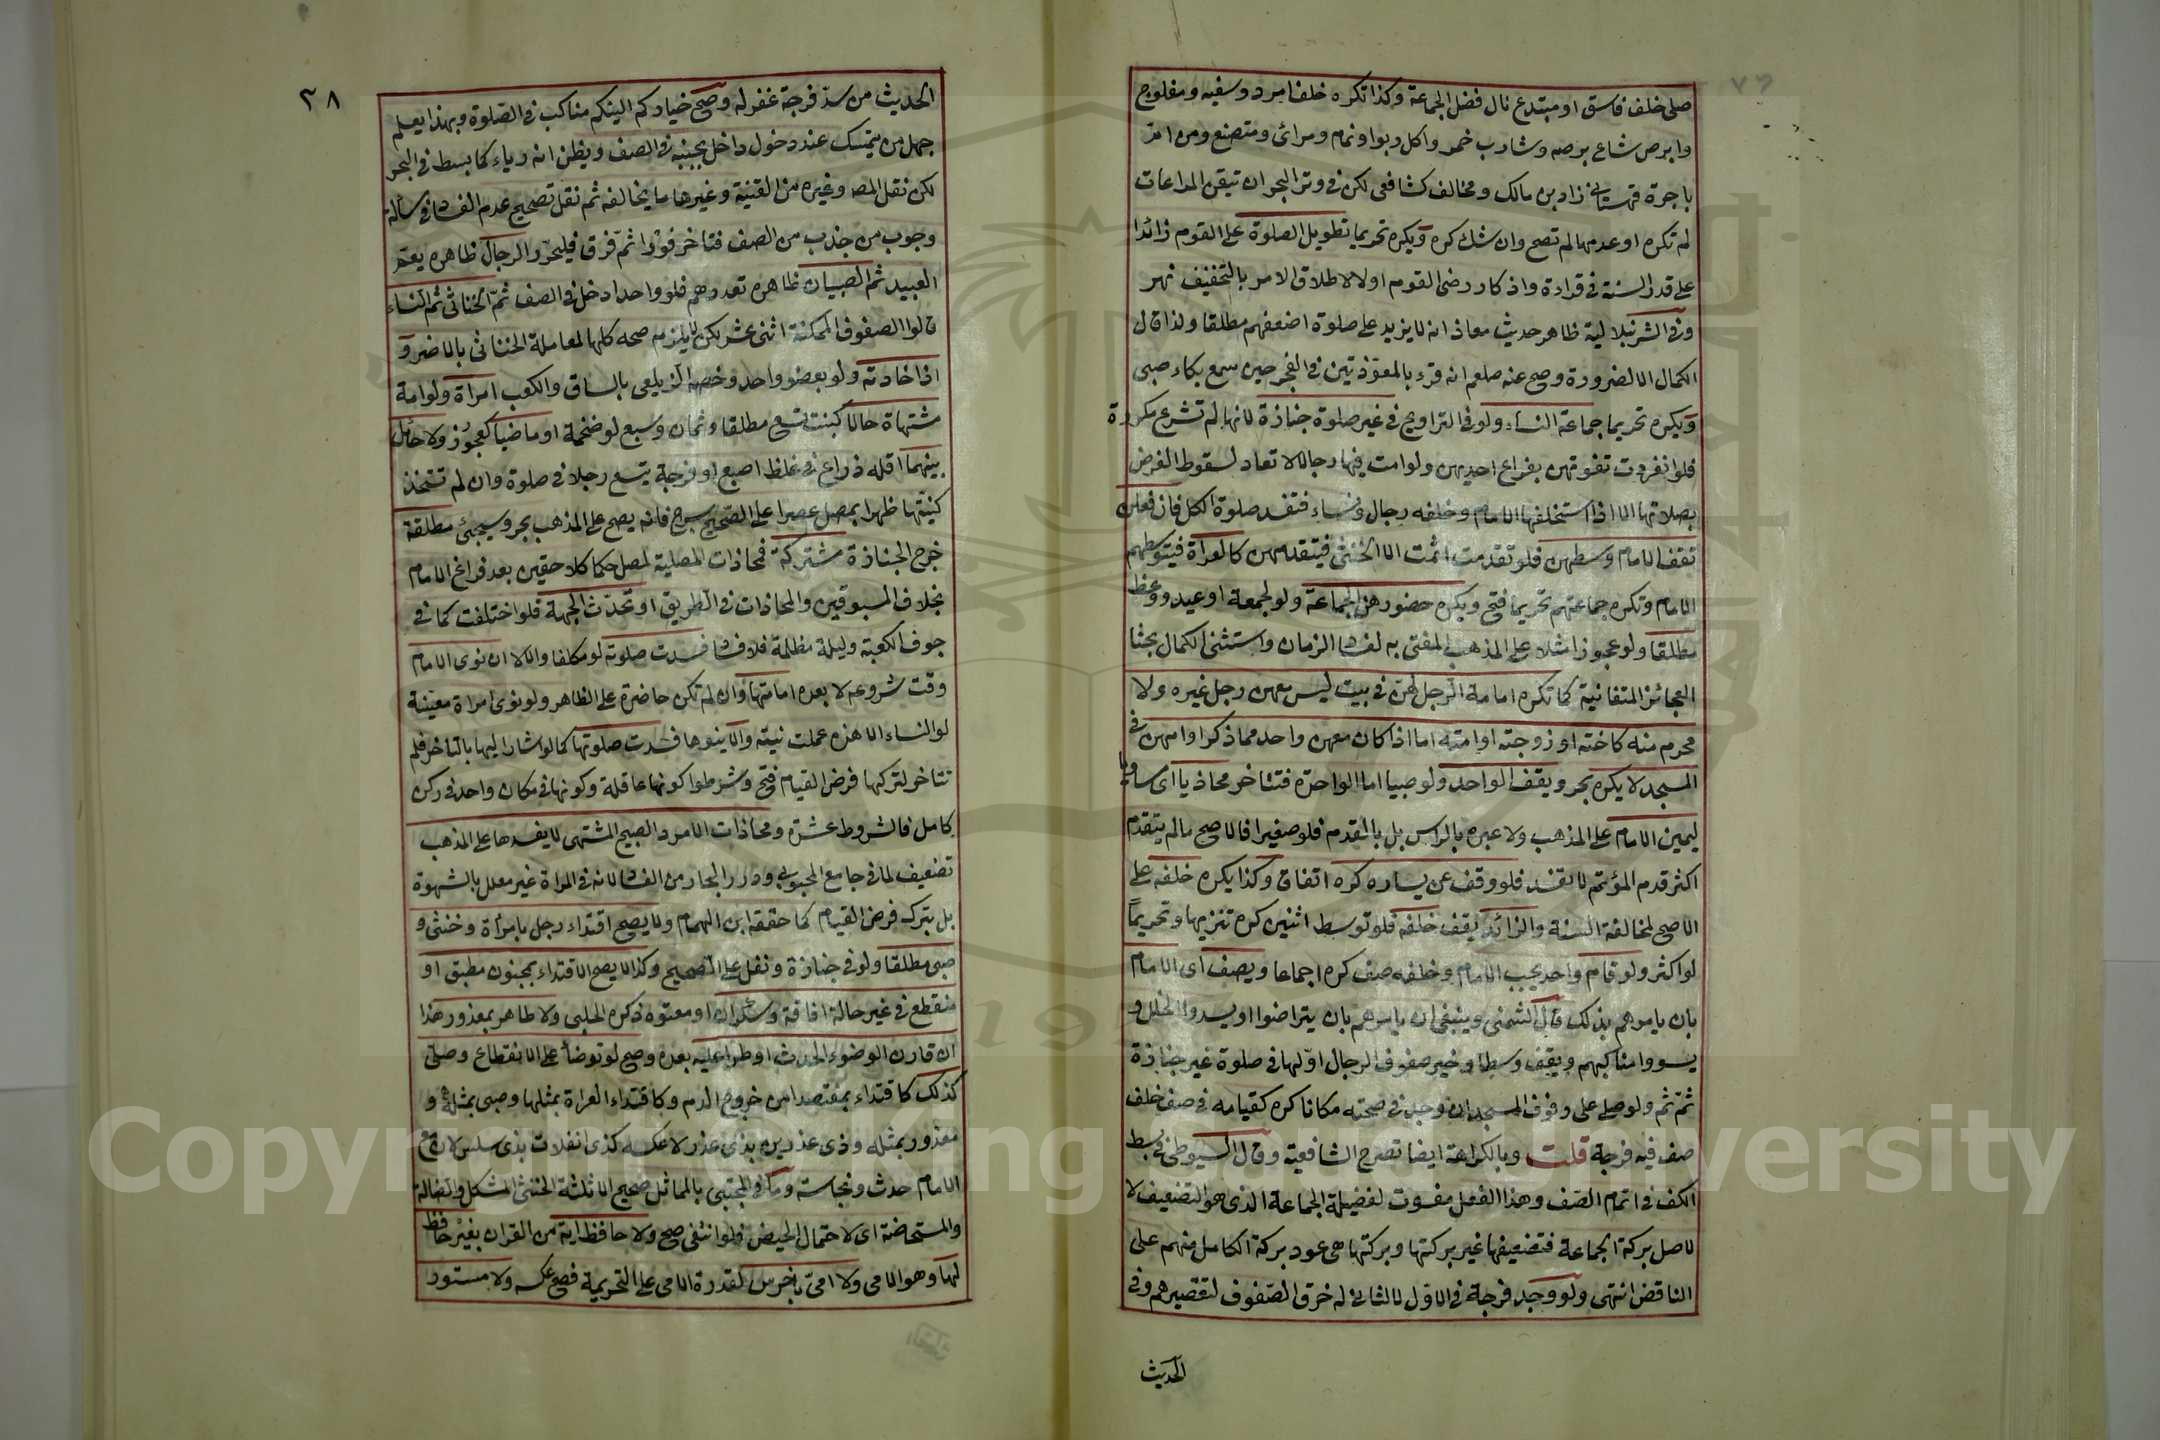 صلى خلف فاسق او مبتدع نال فضل الجماعة وكذا تكره خلف امرد وسفيه ومفلوج
وابرص شاع برصه وشارب خمر واكل ربوا ونمام ومرائى ومتصنع ومن ام
باجرة قهستانى زاد بن مالك ومخالف كشافعى لكن فى وتر البحر ان تيقن المراعات
لم تكره او عدمها لم تصح وان شك كره ويكره تحريما تطويل الصلوة على القوم زائدا
على قدر السنة فى قراءة واذكار رضى القوم اولا لاطلاق الامر بالتخفيف نهر
وفى الشرنبلالية ظاهر حديث معاذ انه لا يزيد على صلوة اضعفهم مطلقا ولذا قال
الكمال الا لضرورة وصح عنه صلعم انه قرء بالمعوذتين فى الفجر حين سمع بكاء صبى
ويكره تحريما جماعة النساء ولو فى التراويح فى غير صلوة جنازة لانها لم تشرع مكررة
فلو انفردت تفوتهن بفراغ احديهن ولو امت فيها رجالا لا تعاد لسقوط الفرض
بصلاتها الا اذا استخلفها الامام وخلفه رجال ونساء فتفسد صلوة الكل فان فعلن
تقف الامام وسطهن فلو تقدمت اثمت الا الخنثى فيتقدمهن كالعراة فيتوسطهم
الامام وتكره جماعتهم تحريما فتح ويكره حضورهن الجماعة ولو لجمعة او عيد ووعظ
مطلقا ولو عجوزا ثلا على المذهب المفتى به لفساد الزمان واستثنى الكمال بحثا
العجائز المتفانية كما تكره امامة الرجل لهن فى بيت ليس معهن رجل غيره ولا
محرم منه كاخته او زوجته او امته اما اذا كان معهن واحد مما ذكر او امهن فى
المسجد لا يكره بحر ويقف الواحد ولو صبيا اما الواحدة فتتاخر محاذيا اى ساويا
ليمين الامام على المذهب ولا عبره بالراس بل بالقدم فلو صغيرا فالاصح مالم يتقدم
اكثر قدم المؤتم لا يفسد فلو وقف عن يساره كره اتفاق وكذا يكره خلفه على
الاصح لمخالفة السنة والزائد يقف خلفه فلو توسط اثنين كره تنزيها وتحريما
لو اكثر ولو قام واحد بجب الامام وخلفه صف كره اجماعا ويصف اى الامام
بان يامرهم بذلك قال الشمنى وينبغى ان يامرهم بان يتراضوا او يسدوا الخلل و
يسووا مناكبهم ويقف وسطا وخير صفوف الرجال اولها فى صلوة غير جنازة
ثم ثم ولو صلى على رفوف المسجد ان وجد فى صحنه مكانا كره كقيامه فى صف خلف
صف فيه فرجة قلت وبالكراهة ايضا تصرح الشافعية وقال السيوطى فى بسط
الكف فى اتمام الصف وهذا الفعل مفوت لفضيلة الجماعة الذى هو التضعيف لا
لاصل بركة الجماعة فتضعيفها غير بركتها وبركتها هى عود بركة الكامل منهم على
الناقض انتهى ولو وجد فرجة فى الاول لا الثانى له خرق الصفوف لتقصيرهم وفى
الحديث
٣٨
الحديث من سد فرجة غفر له وصح خياركم الينكم مناكب فى الصلوة وبهذا يعلم
جهل من يتمسك عند دخول داخل بجنبه فى الصف ويظن انه رياء كما بسط فى البحر
لكن نقل المص وغيره من القنية وغيرها ما يخالفه ثم نقل تصحيح عدم الفساد فى سألة
وجوب من جذب من الصف فتاخر فورا ثم فرق فليحرر والرجال ظاهره يعم
العبيد ثم الصبيان ظاهره تعددهم فلو واحدا دخل فى الصف ثم الخناثى ثم النساء
قالوا الصفوف الممكنة اثنى عشر لكن لا يلزم صحه كلها لمعاملة الخناثى بالاضر و
اذا حاذته ولو بعضو واحد وخصه الزيلعى بالساق والكعب امراة ولو امة
مشتهاة حالا كبنت تسع مطلقا وثمان وسبع لو ضخمة او ماضيا كعجوز ولا حائل
بينهما اقله ذراع فى غلظ اصبع او فرجة يتسع رجلا فى صلوة وان لم تتخذ
كنيتها ظهرا بمصل عصرا على الصحيح سرج فانه يصح على المذهب بحر وسيجئ مطلقة
خرج الجنازة مشتركة فمحاذات المصلية لمصل حكما كلاحقين بعد فراغ الامام
بخلاف المسبوقين والمحاذات فى الطريق او تحدث الجهة فلو اختلفت كما فى
جوف الكعبة وليلة مظلمة فلا فساد فسدت صلوته لو مكلفا والا لا ان نوى الامام
وقت شروعه لا بعده امامتها وان لم تكن حاضرة على الظاهر ولو نوى امراة معينة
لو النساء الا هذه عملت نيته والا ينوها فسدت صلوتها كما لو اشار اليها بالتاخر فلم
تتاخر لتركها فرض القيام فتح وشرطوا كونها عاقلة وكونها فى مكان واحد فى ركن
كامل فالشروط عشرة ومحاذات الامرد الصبيح المشتهى لا يفسدها على المذهب
تضعيف لما فى جامع المحبوبى ودرر البحار من الفساد لانه فى المراة غير معلل بالشهوة
بل بترك فرض القيام كما حققه ابن الهمام ولا يصح اقتداء رجل بامراة وخنثى و
صبى مطلقا ولو فى جنازة ونفل على الصحيح وكذا لا يصح الاقتداء بمجنون مطبق او
منقطع فى غير حالة افاقة وسكران او معتوه ذكره الحلبى ولا طاهر بمعذور هذا
ان قارن الوضوء الحدث او طرا عليه بعده وصح لو توضأ على الانقطاع وصلى
كذلك كاقتداء بمفتصد امن خروج الدم وكاقتداء العراة بمثلها وصبى بمثله و
معذور بمثله وذى عذرين بذى عذر لا عكسه كذى انفلات بذى سلس لان مع
الامام حدث ونجاسة وما فى المجتبى بالمماثل صحيح الا ثلثة الخنثى المشكل والضالة
والمستحاضة اى لاحتمال الحيض فلو انتفى صح ولا حافظ اية من القران بغير حافظ
لها وهو الامى ولا امى باخرس لقدرة الامى على التحريمة فصح عكسه ولا مستور
Copyright © King Saud University